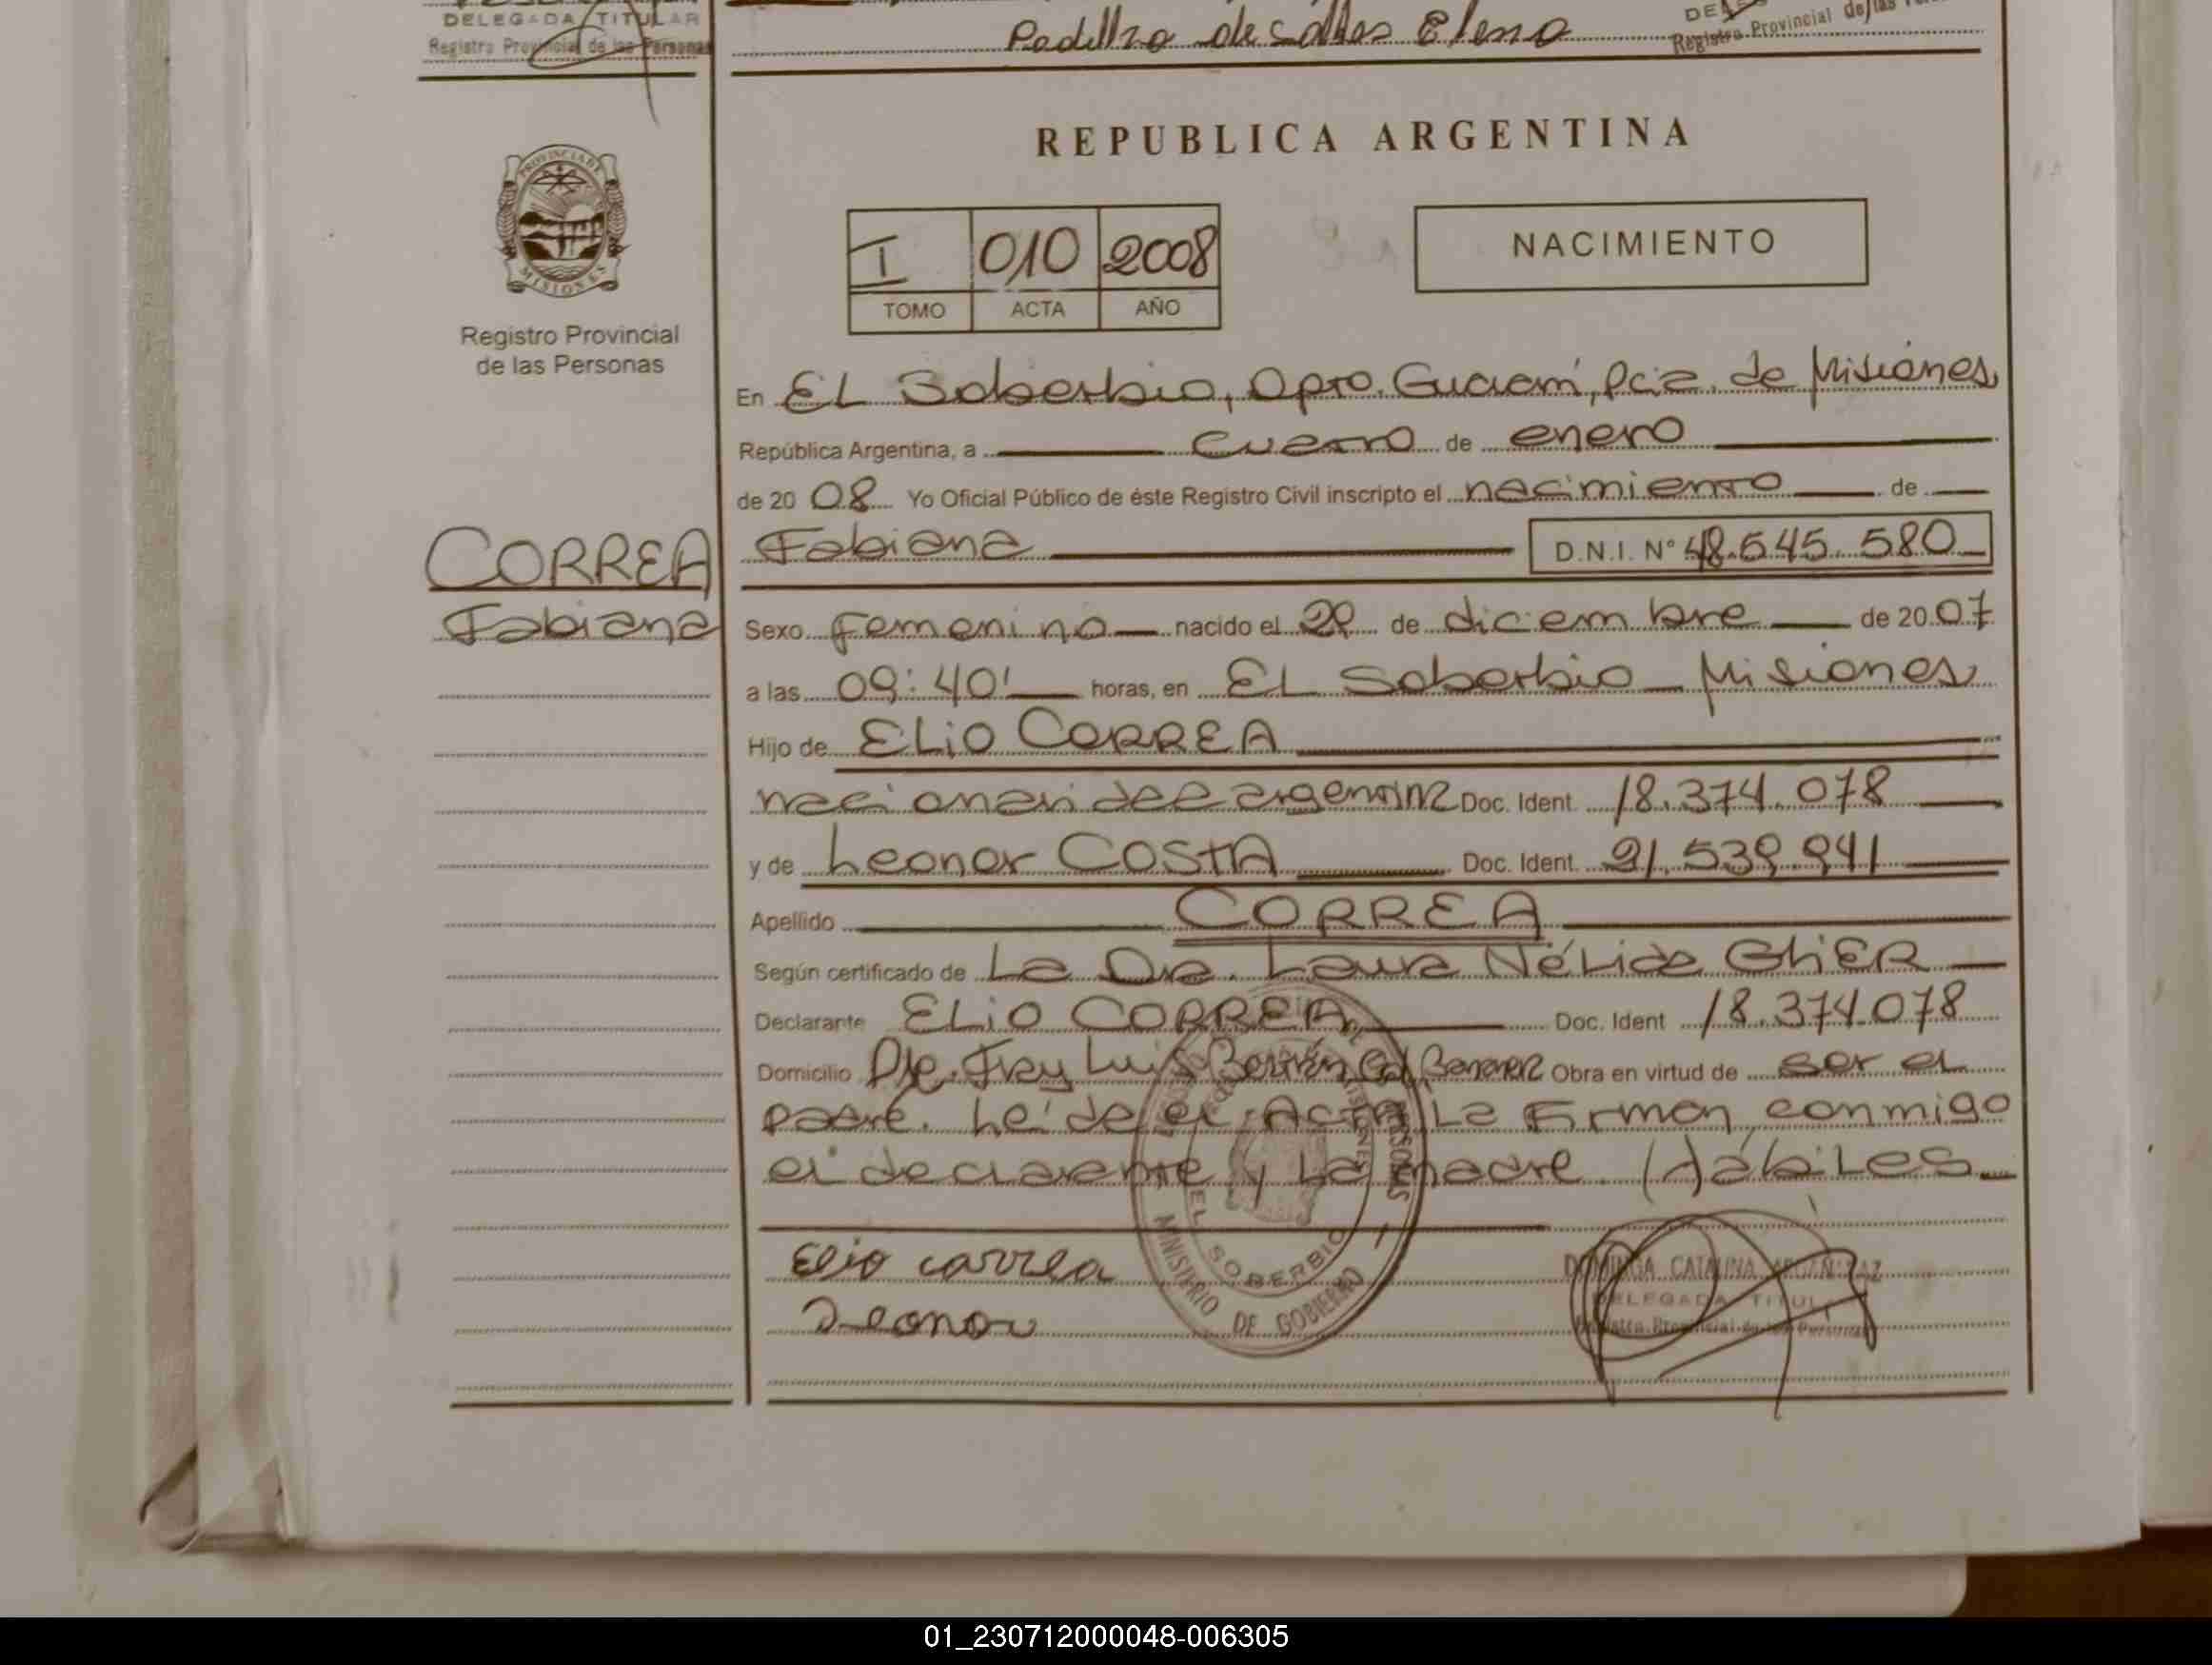 DELEGADA TITULAR
Registro Provincial de las Personas
Padilha de Sallas Elena
Registro Provincial de las
PROVINCIA DE
MISIONES
Registro Provincial
de las Personas
REPUBLICA ARGENTINA
I 010 2008
TOMO ACTA AÑO
NACIMIENTO
En EL Soberbio, Dpto. Guaraní, Pcia. de Misiones
República Argentina, a cuatro de enero
de 20 08 Yo Oficial Público de éste Registro Civil inscripto el nacimiento de
CORREA
Fabiana
Fabiana D.N.I. N° 48.545.580
Sexo Femenino nacido el 29 de diciembre de 20 07
a las 09:40' horas, en EL Soberbio - Misiones
Hijo de ELiO CORREA
nacionalidad argentina Doc. Ident. 18.374.078
y de Leonor COSTA Doc. Ident. 21.539.941
Apellido CORREA
Según certificado de La Dra. Laura NéLida
Declarante ELiO CORREA Doc. Ident 18.374.078
Domicilio Pje. Fray Luis Beltrán Obra en virtud de ser el
padre. Leída el Acta La Firman conmigo
el declarante y La madre. Hábiles
Elio correa
Leonor
EL SOBERBIO
MINISTERIO DE GOBIERNO
CATALINA
DELEGADA TITULAR
Registro Provincial de las Personas
01_230712000048-006305